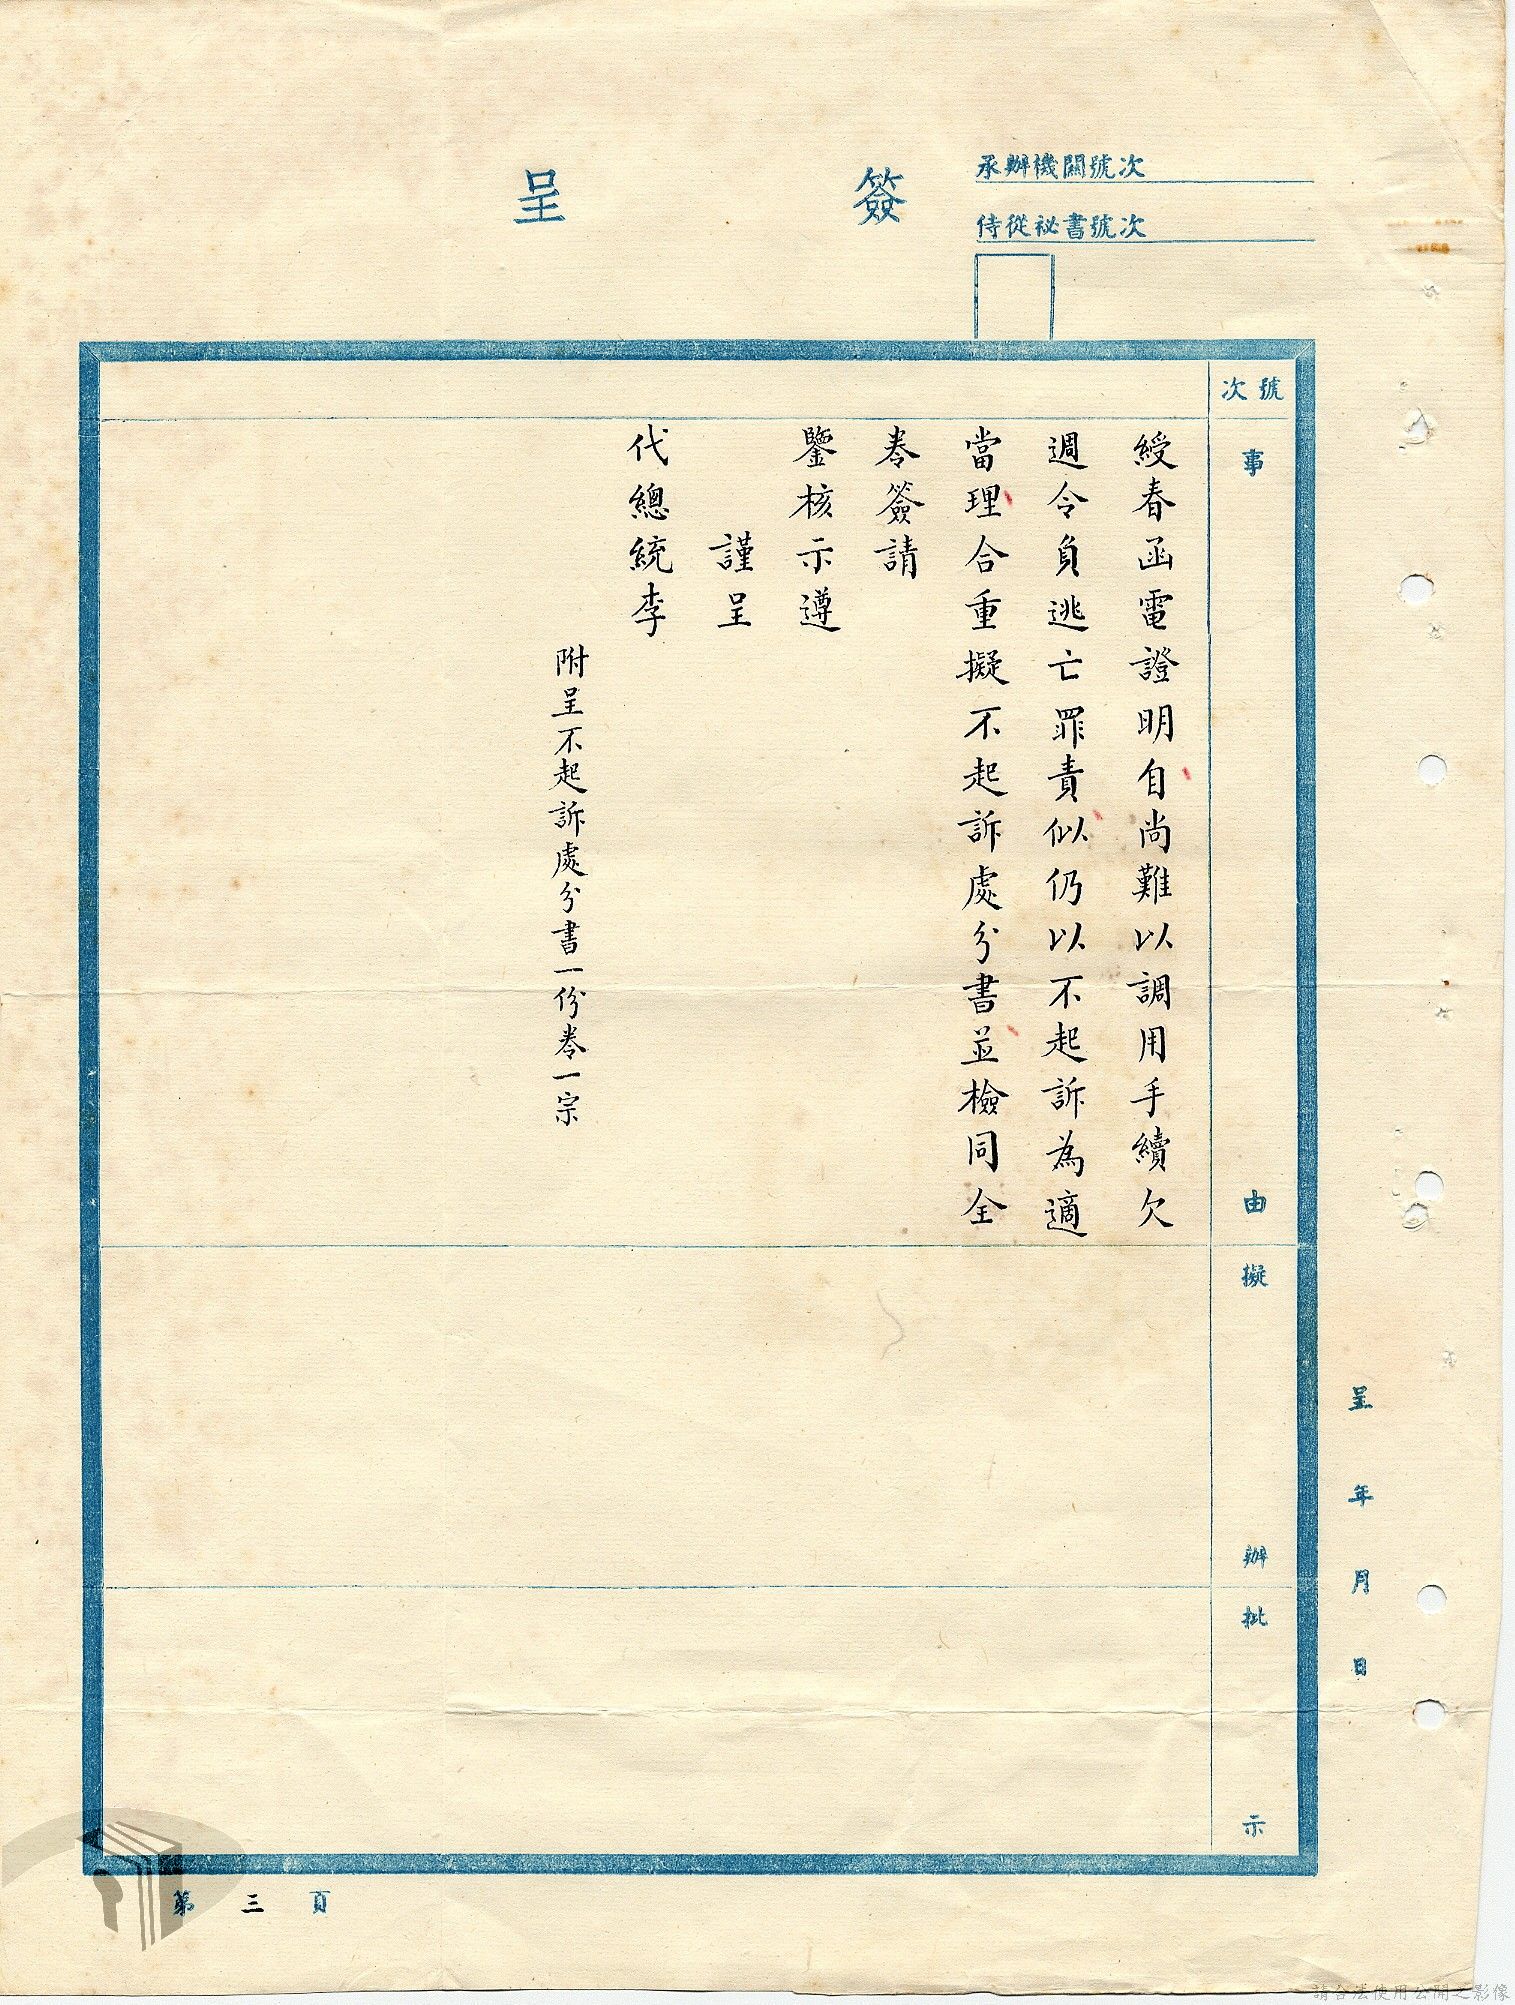 簽呈
承辦機關號次
侍從祕書號次
號次
事由
擬辦
批示
綬春函電證明自尚難以調用手續欠
週令負逃亡罪責似仍以不起訴為適
當理合重擬不起訴處分書並檢同全
卷簽請
鑒核示遵
謹呈
代總統李
附呈不起訴處分書一份卷一宗
呈年月日
第三頁
請合法使用公開之影像